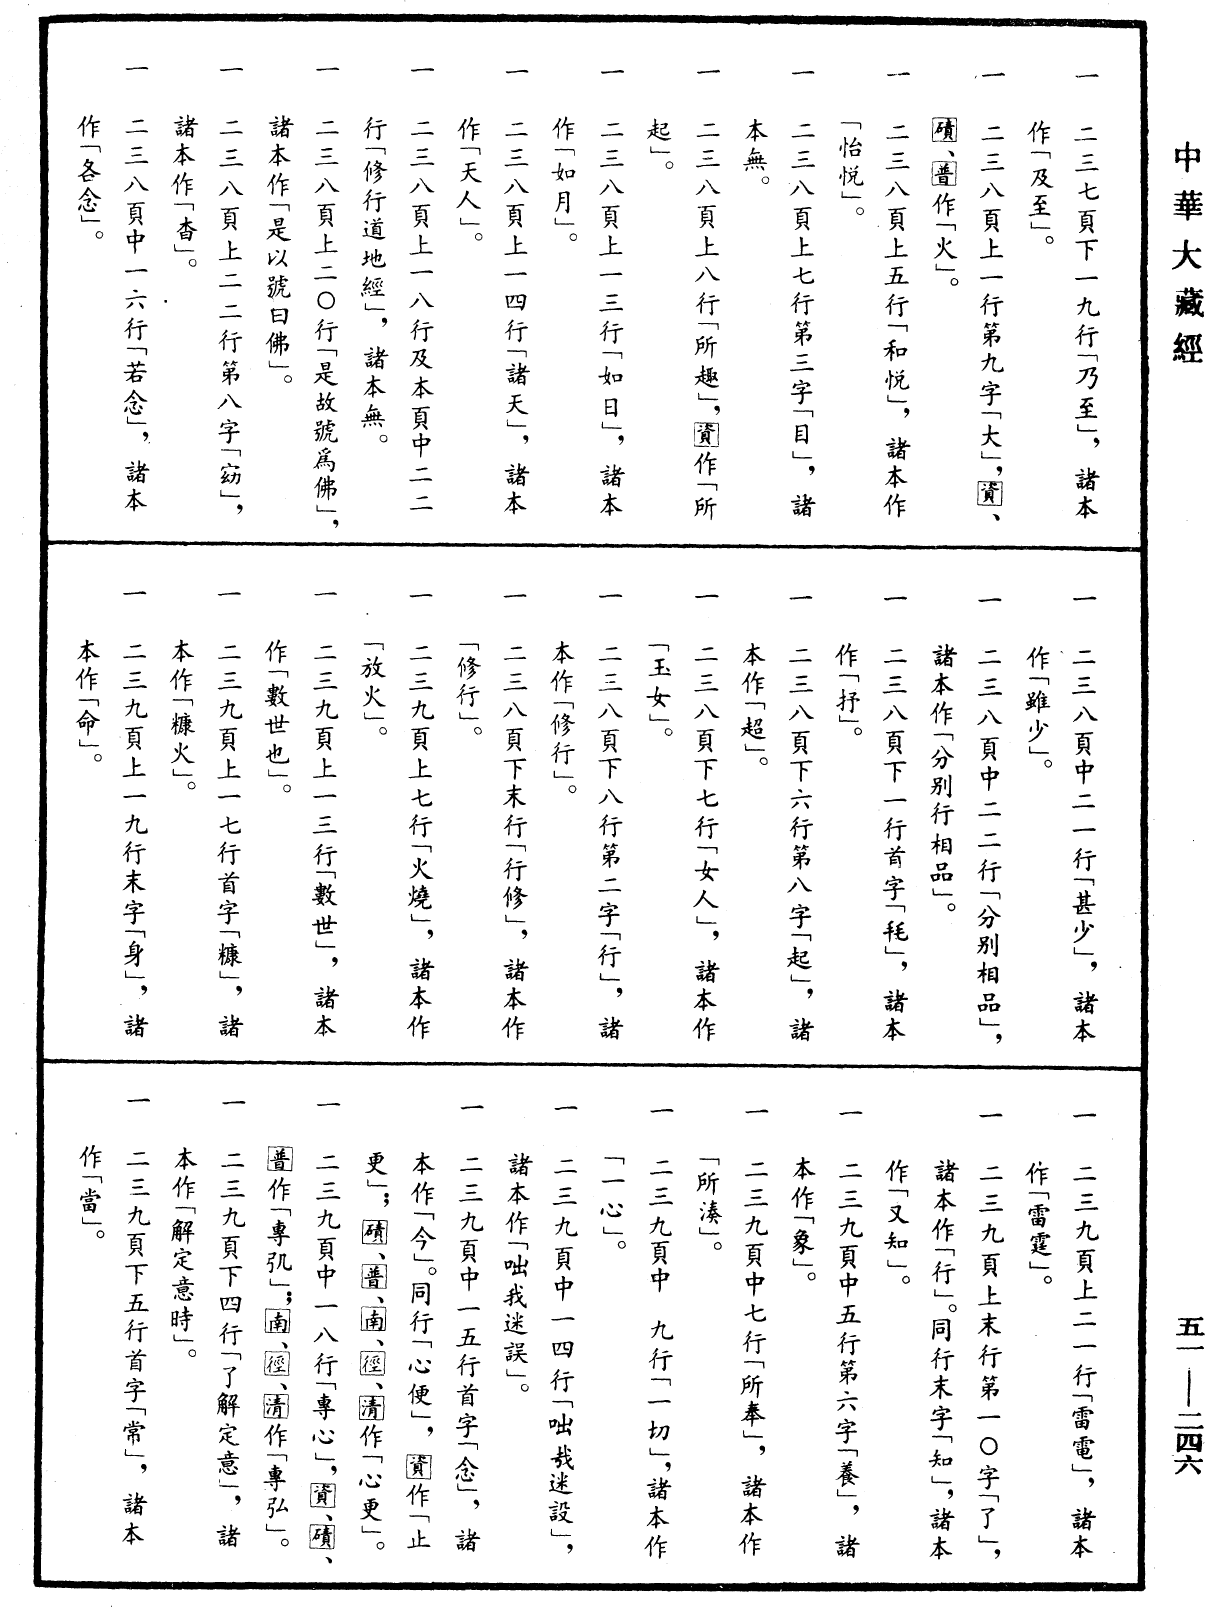 中華大藏經
一　二三七頁下一九行「乃至」，諸本
作「及至」。
一　二三八頁上一行第九字「大」，資、
磧、普作「火」。
一　二三八頁上五行「和悅」，諸本作
「怡悅」。
一　二三八頁上七行第三字「目」，諸
本無。
一　二三八頁上八行「所趣」，資作「所
起」。
一　二三八頁上一三行「如日」，諸本
作「如月」。
一　二三八頁上一四行「諸天」，諸本
作「天人」。
一　二三八頁上一八行及本頁中二二
行「修行道地經」，諸本無。
一　二三八頁上二〇行「是故號爲佛」，
諸本作「是以號曰佛」。
一　二三八頁上二二行第八字「窈」，
諸本作「杳」。
一　二三八頁中一六行「若念」，諸本
作「各念」。
一　二三八頁中二一行「甚少」，諸本
作「雖少」。
一　二三八頁中二二行「分别相品」，
諸本作「分别行相品」。
一　二三八頁下一行首字「毦」，諸本
作「抒」。
一　二三八頁下六行第八字「起」，諸
本作「超」。
一　二三八頁下七行「女人」，諸本作
「玉女」。
一　二三八頁下八行第二字「行」，諸
本作「修行」。
一　二三八頁下末行「行修」，諸本作
「修行」。
一　二三九頁上七行「火燒」，諸本作
「放火」。
一　二三九頁上一三行「數世」，諸本
作「數世也」。
一　二三九頁上一七行首字「糠」，諸
本作「糠火」。
一　二三九頁上一九行末字「身」，諸
本作「命」。
一　二三九頁上二一行「雷電」，諸本
作「雷霆」。
一　二三九頁上末行第一〇字「了」，
諸本作「行」。同行末字「知」，諸本
作「又知」。
一　二三九頁中五行第六字「養」，諸
本作「象」。
一　二三九頁中七行「所奉」，諸本作
「所湊」。
一　二三九頁中　九行「一切」，諸本作
「一心」。
一　二三九頁中一四行「咄哉迷設」，
諸本作「咄我迷誤」。
一　二三九頁中一五行首字「念」，諸
本作「今」。同行「心便」，資作「止
更」；磧、普、南、徑、清作「心更」。
一　二三九頁中一八行「專心」，資、磧、
普作「專㧈」；南、徑、清作「專弘」。
一　二三九頁下四行「了解定意」，諸
本作「解定意時」。
一　二三九頁下五行首字「常」，諸本
作「當」。
五一——二四六